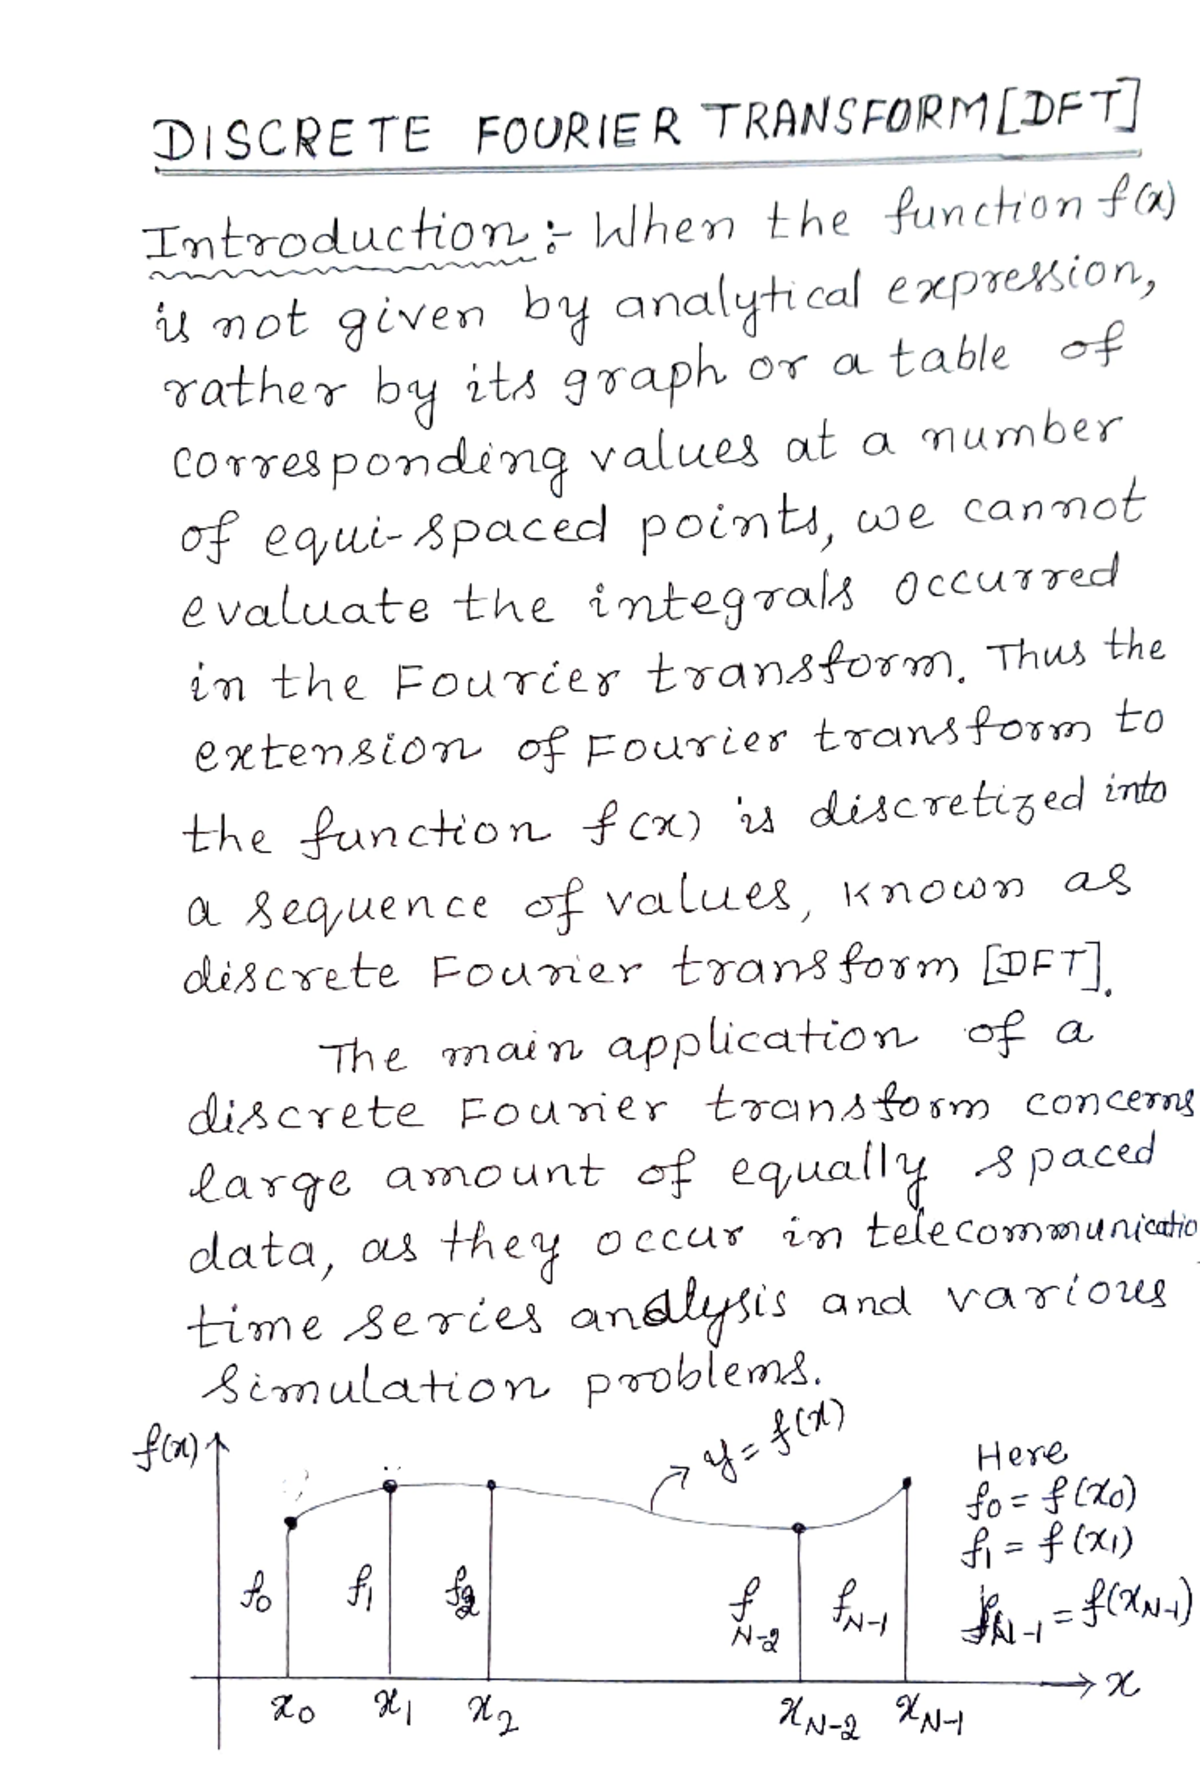 DISCRETE FOURIER TRANSFORM [DFT]
Introduction :- When the function f(x)
is not given by analytical expression,
rather by its graph or a table of
corresponding values at a number
of equi-spaced points, we cannot
evaluate the integrals occurred
in the Fourier transform. Thus the
extension of Fourier transform to
the function f(x) is discretized into
a sequence of values, known as
discrete Fourier transform [DFT].
The main application of a
discrete Fourier transform concerns
large amount of equally spaced
data, as they occur in telecommunicatio
time series analysis and various
simulation problems.
f(x)
y = f(x)
Here
f₀ = f(x₀)
f₁ = f(x₁)
fN-1 = f(xN-1)
f₀ f₁ f₂ fN-2 fN-1
x
x₀ x₁ x₂ xN-2 xN-1